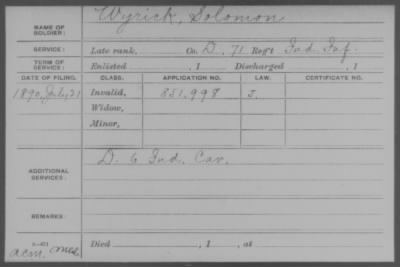 NAME OF SOLDIER: Wyrick, Solomon
SERVICE: Late rank, Co. D, 71 Reg't Ind. Inf.
TERM OF SERVICE: Enlisted , 1 Discharged , 1
DATE OF FILING. CLASS. APPLICATION NO. LAW. CERTIFICATE NO.
1890, July, 21 Invalid, 851,998 J.
Widow,
Minor,
ADDITIONAL SERVICES: D. 6 Ind. Cav.
REMARKS:
Died , 1 , at
acm.